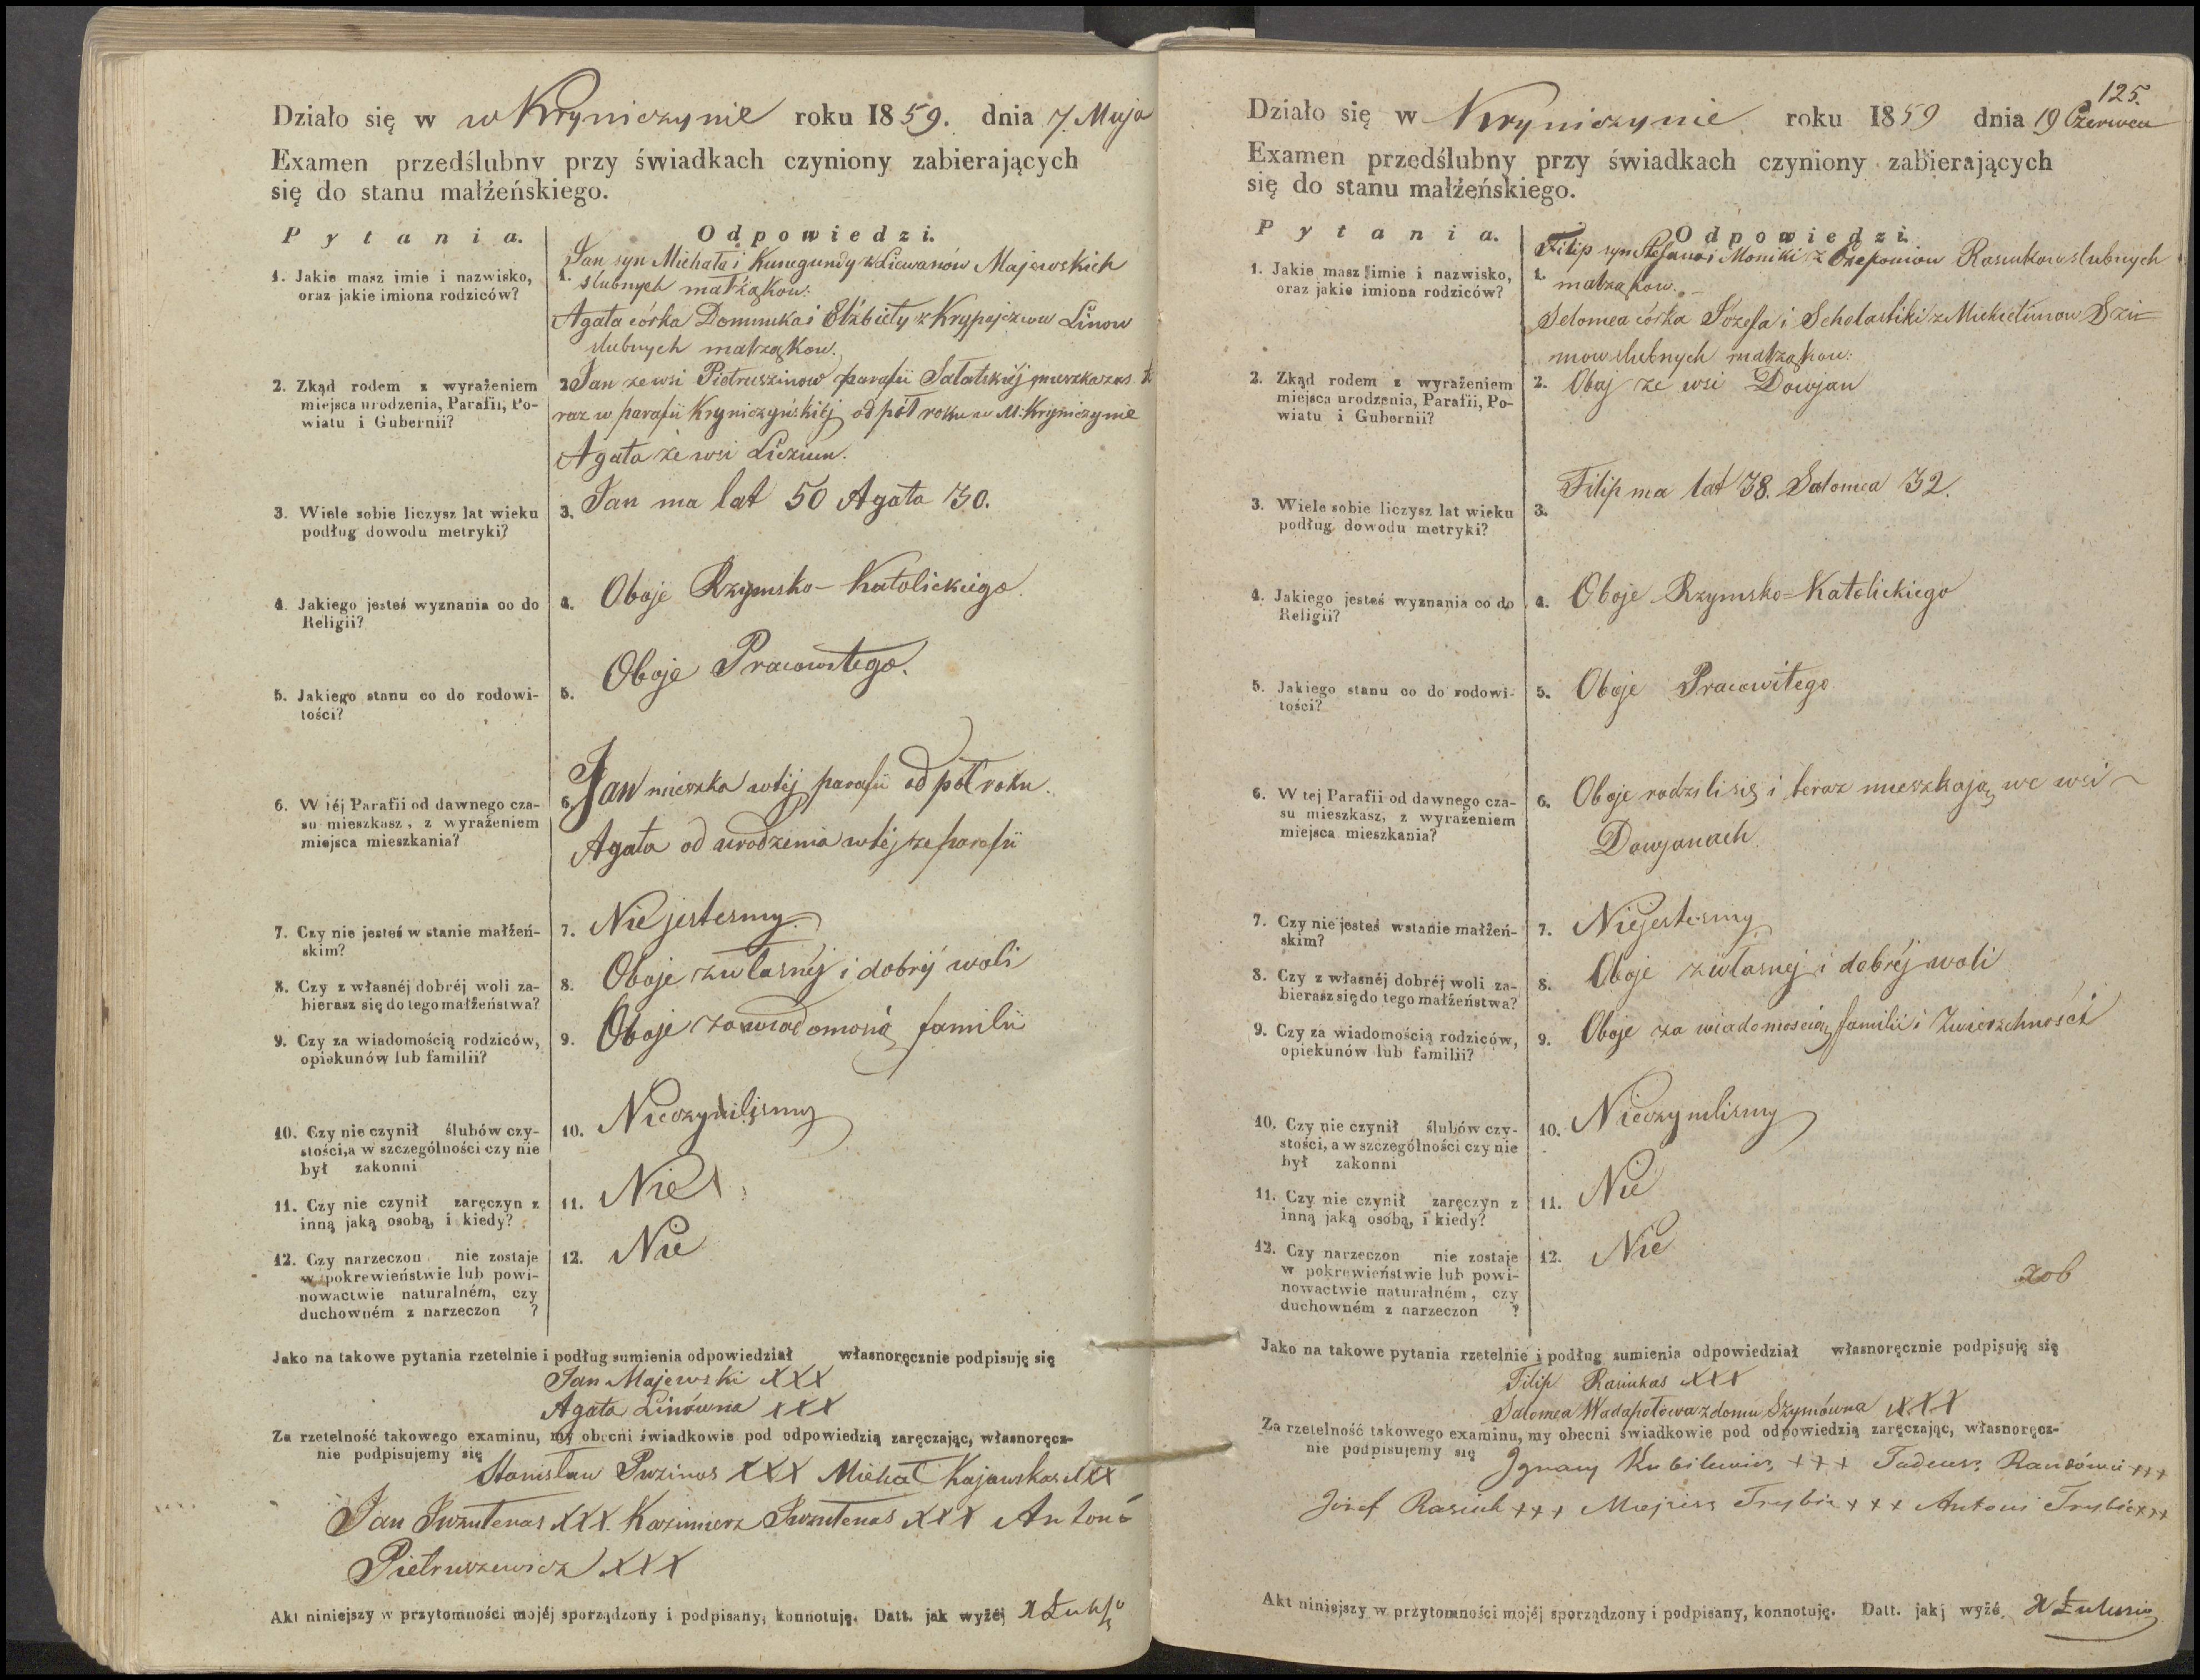 Działo się w w Kryniczynie roku 1859. dnia 7. Maja
Examen przedślubny przy świadkach czyniony zabierających
się do stanu małżeńskiego.
Pytania. Odpowiedzi.
1. Jakie masz imie i nazwisko,
oraz jakie imiona rodziców?
1. Jan syn Michała i Kunegundy z Liewanów Majewskich
slubnych matząkow:
Agata córka Dominika i Elżbiety z Linow
slubnych matrząkow.
2. Zkąd rodem z wyrażeniem
miejsca urodzenia, Parafii, Po-
wiatu i Gubernii?
2. Jan ze wsi Pietruszinow parafii Sałatskiéj mieszka zas te
raz w parafii Kryniczyńskiéj od pół roku w M. Kryniczynie
Agata ze wsi Liczun.
3. Wiele sobie liczysz lat wieku
podług dowodu metryki?
3. Jan ma lat 50 Agata 30.
4. Jakiego jesteś wyznania co do
Religii?
4. Oboje Rzymsko-Katolickiego
5. Jakiego stanu co do rodowi-
tości?
5. Oboje Pracowitego.
6. W téj Parafii od dawnego cza-
su mieszkasz, z wyrażeniem
miejsca mieszkania?
6. Jan mieszka wtéj parafii od pół roku.
Agata od urodzenia wtéj ze parafii
7. Czy nie jesteś w stanie małżeń-
skim?
7. Nie jestesmy
8. Czy z własnéj dobréj woli za-
bierasz się do tego małżeństwa?
8. Oboje zwłasnéj i dobréj woli
9. Czy za wiadomością rodziców,
opiekunów lub familii?
9. Oboje familii
10. Czy nie czynił ślubów czy-
stości, a w szczególności czy nie
był zakonni
10. Nieczynilismy
11. Czy nie czynił zaręczyn z
inną jaką osobą, i kiedy?
11. Nie
12. Czy narzeczon nie zostaje
w pokrewieństwie lub powi-
nowactwie naturalném, czy
duchowném z narzeczon ?
12. Nie
Jako na takowe pytania rzetelnie i podług sumienia odpowiedział własnoręcznie podpisuję się
Jan Majewski XXX
Agata Linówna XXX
Za rzetelność takowego examinu, my obecni świadkowie pod odpowiedzią zaręczając, własnoręcz-
nie podpisujemy się
Stanisław Puzinos XXX Michał Kajawskas XXX
Jan XXX. Kazimierz XXX Antoni
Pietruszewicz XXX
Akt niniejszy w przytomności mojéj sporządzony i podpisany, konnotuję. Datt. jak wyżéj
125.
Działo się w Kryniczynie roku 1859 dnia 19 Czerwca
Examen przedślubny przy świadkach czyniony zabierających
się do stanu małżeńskiego.
Pytania. Odpowiedzi.
1. Jakie masz imie i nazwisko,
oraz jakie imiona rodziców?
1. Filip syn Stefana i Moniki z Czeponiow Rasiukow slubnych
matząkow.
Solomea córka Józefa i Scholastiki z Mickielunow Szi=
mow slubnych matząkow:
2. Zkąd rodem z wyrażeniem
miejsca urodzenia, Parafii, Po-
wiatu i Gubernii?
2. Oboj ze wsi Dowjan
3. Wiele sobie liczysz lat wieku
podług dowodu metryki?
3. Filip ma lat 38. Salomea 32.
4. Jakiego jesteś wyznania co do
Religii?
4. Oboje Rzymsko=Katolickiego
5. Jakiego stanu co do rodowi-
tości?
5. Oboje Pracowitego
6. W tej Parafii od dawnego cza-
su mieszkasz, z wyrażeniem
miejsca mieszkania?
6. Oboje rodzili się i teraz mieszkają we wsi
Dowjanach.
7. Czy nie jesteś w stanie małżeń-
skim?
7. Niejestesmy
8. Czy z własnéj dobréj woli za-
bierasz się do tego małżeństwa?
8. Oboje zwłasnej i dobréj woli
9. Czy za wiadomością rodziców,
opiekunów lub familii?
9. Oboje za wiadomoscią familii i Zwierzchności
10. Czy nie czynił ślubów czy-
stości, a w szczególności czy nie
był zakonni
10. Nieczynilismy
11. Czy nie czynił zaręczyn z
inną jaką osobą, i kiedy?
11. Nie
12. Czy narzeczon nie zostaje
w pokrewieństwie lub powi-
nowactwie naturalném, czy
duchowném z narzeczon ?
12. Nie
Jako na takowe pytania rzetelnie i podług sumienia odpowiedział własnoręcznie podpisuję się
Filip Rasiukas XXX
Salomea Wadapołowa z domu Szymówna XXX
Za rzetelność takowego examinu, my obecni świadkowie pod odpowiedzią zaręczając, własnoręcz-
nie podpisujemy się
Ignacy Kubilewicz +++ Tadeusz +++
Józef Rasiuk +++ Mojżesz Trybia +++ Antoni +++
Akt niniejszy w przytomności mojéj sporządzony i podpisany, konnotuję. Datt. jakj wyżé.